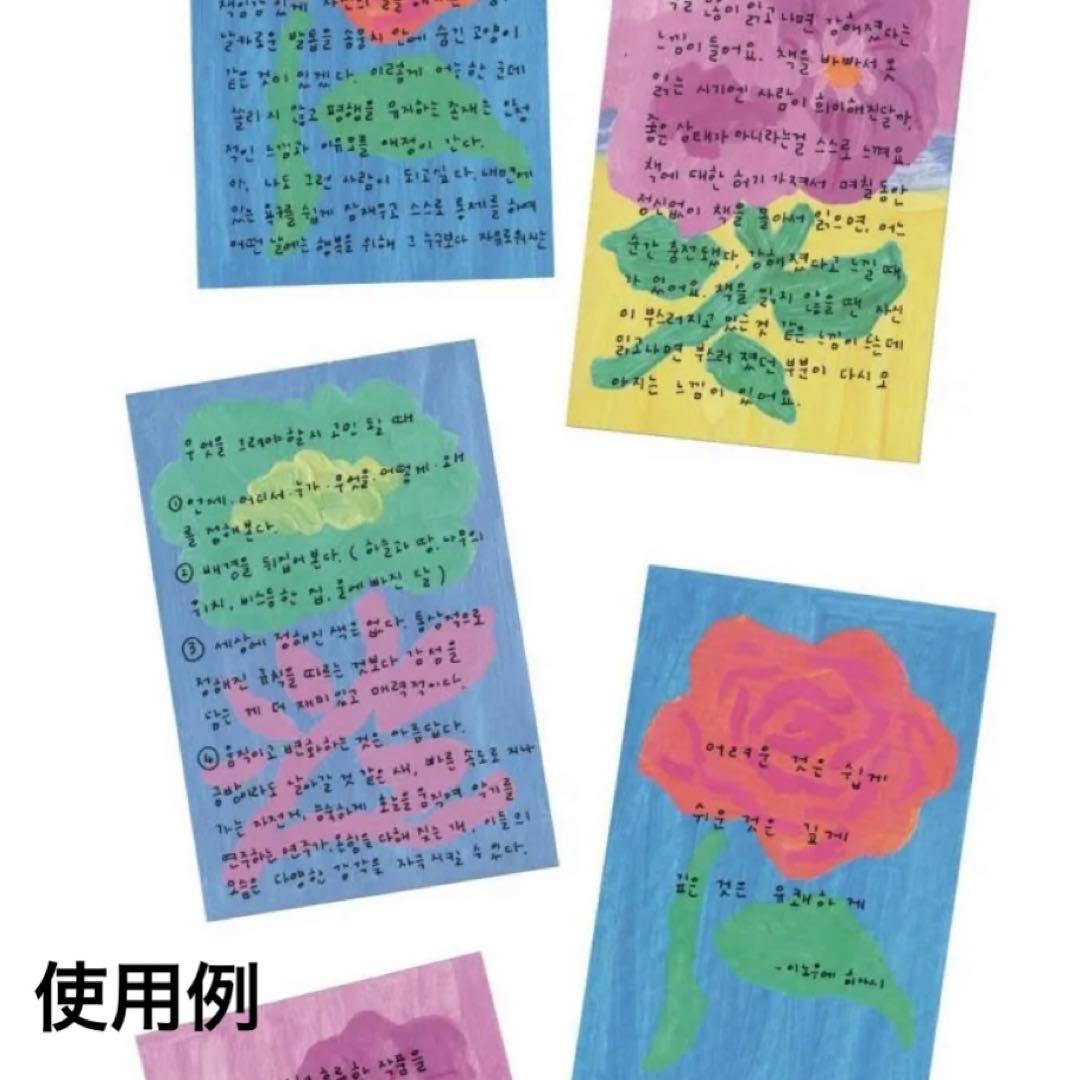 날카로운 발톱을 송뭉치 안에 숨긴 고양이
같은 것이 있겠다. 이렇게 어느 한 군데
쏠리지 않고 평행을 유지하는 존재는 안정
적인 느낌과 이유모를 애정이 간다.
아, 나도 그런 사람이 되고싶다. 내면에
있는 욕구를 쉽게 잠재우고 스스로 통제를 하며
어떤 날에는 행복을 위해 그 누구보다 자유로워지는
책을 많이 읽고 나면 강해졌다는
느낌이 들어요. 책을 바빠서 못
읽는 시기엔 사람이 희미해진달까,
좋은 상태가 아니라는걸 스스로 느껴요
책에 대한 허기가져서 며칠동안
정신없이 책을 몰아서 읽으면, 어느
순간 충전됐다, 강해졌다고 느낄 때
가 있어요. 책을 읽지 않을 땐 자신
이 부스러지고 있는것 같은 느낌이 드는데
읽고나면 부스러졌던 부분이 다시 모
아지는 느낌이 있어요.
무엇을 그려야할지 고민 될 때
① 언제·어디서·누가·무엇을·어떻게·왜
를 정해본다.
② 배경을 뒤집어본다. (하늘과 땅, 나무의
위치, 비스듬한 집, 물에 빠진 달)
③ 세상에 정해진 색은 없다. 통상적으로
정해진 규칙을 따르는 것보다 감성을
담은 게 더 재미있고 매력적이다.
④ 움직이고 변화하는 것은 아름답다.
금방이라도 날아갈 것 같은 새, 빠른 속도로 지나
가는 자전거, 능숙하게 활을 움직여 악기를
연주하는 연주가, 온힘을 다해 짖는 개, 이들의
모습은 다양한 감각을 자극시킬 수 있다.
어려운 것은 쉽게
쉬운 것은 깊게
깊은 것은 유쾌하게
-이노우에 히사시
使用例
작품을